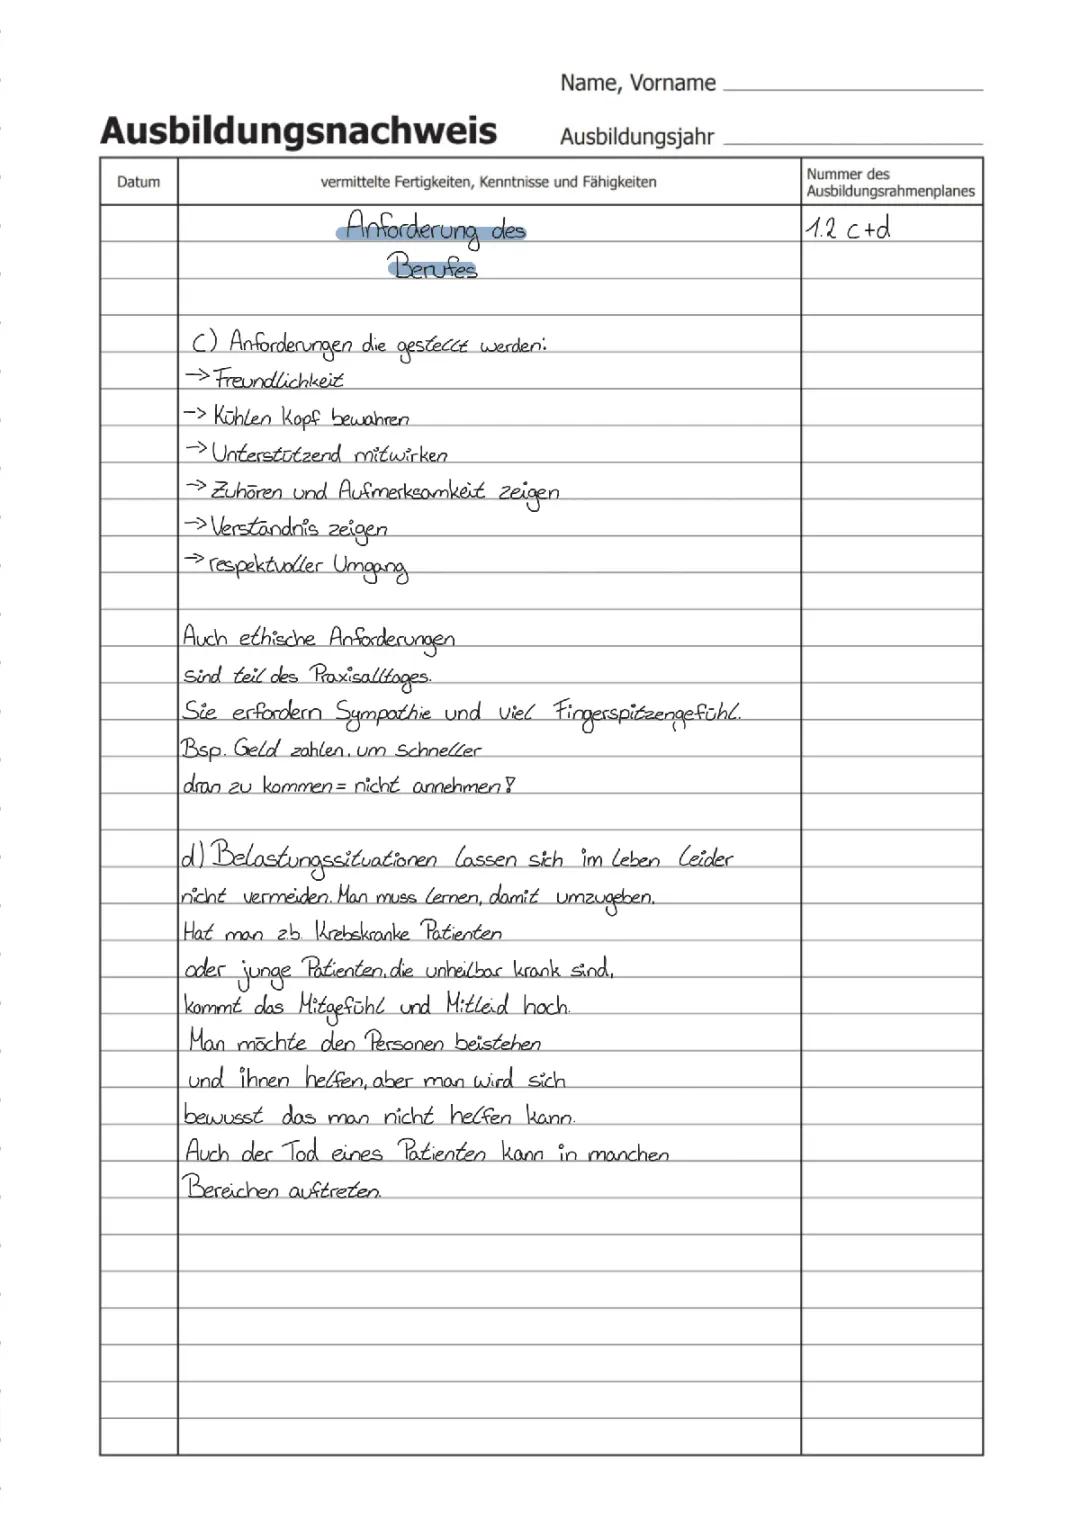 Name, Vorname
Ausbildungsnachweis
Ausbildungsjahr
Datum
vermittelte Fertigkeiten, Kenntnisse und Fähigkeiten
Nummer des
Ausbildungsrahmenplanes
Anforderung des
1.2 c+d
Berufes
C) Anforderungen die gestellt werden:
-> Freundlichkeit
-> Kühlen Kopf bewahren
-> Unterstützend mitwirken
-> Zuhören und Aufmerksamkeit zeigen
-> Verständnis zeigen
-> respektvoller Umgang
Auch ethische Anforderungen
sind teil des Praxisalltages.
Sie erfordern Sympathie und viel Fingerspitzengefühl.
Bsp. Geld zahlen, um schneller
dran zu kommen = nicht annehmen!
d) Belastungssituationen lassen sich im Leben leider
nicht vermeiden. Man muss lernen, damit umzugeben.
Hat man z.b. Krebskranke Patienten
oder junge Patienten, die unheilbar krank sind,
kommt das Mitgefühl und Mitleid hoch.
Man möchte den Personen beistehen
und ihnen helfen, aber man wird sich
bewusst das man nicht helfen kann.
Auch der Tod eines Patienten kann in manchen
Bereichen auftreten.